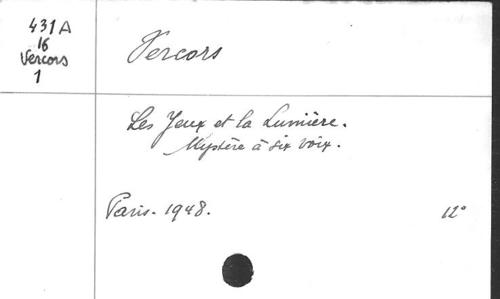 431A
16
Vercors
1
Vercors
Les Yeux et la Lumière.
Mystère à six voix.
Paris. 1948. 12°